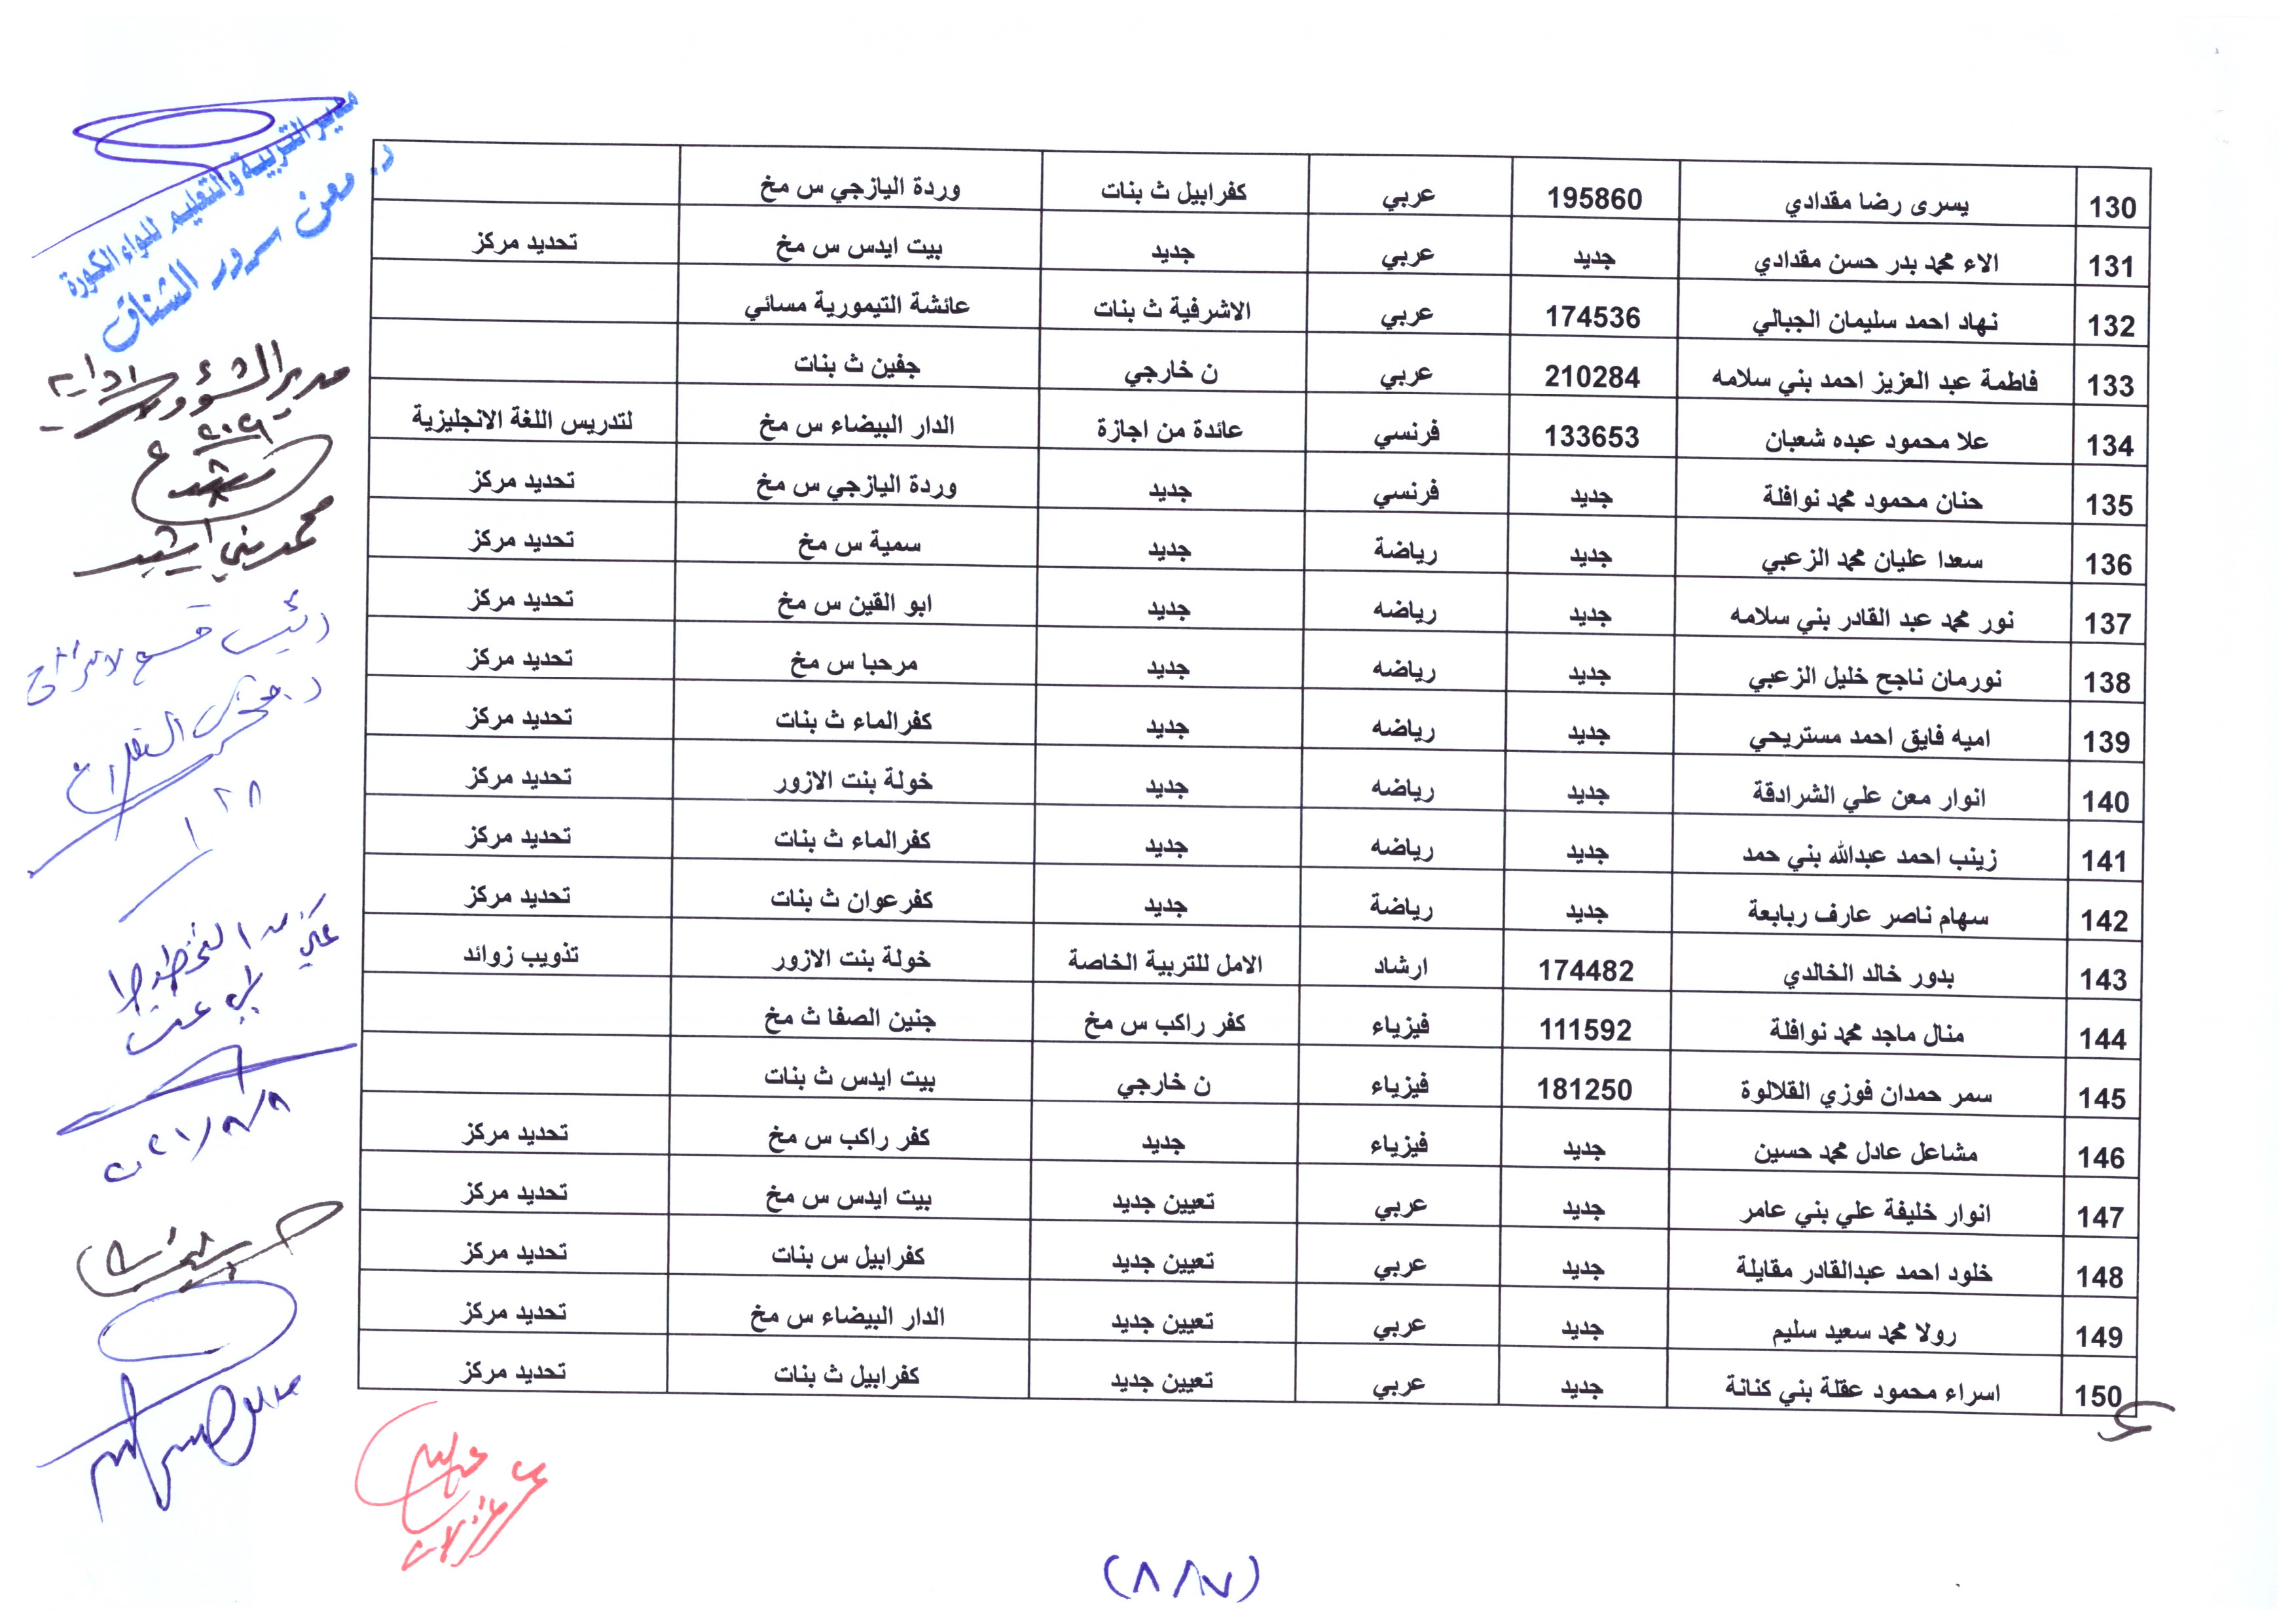 130 يسرى رضا مقدادي 195860 عربي كفرابيل ث بنات وردة اليازجي س مخ
131 الاء محمد بدر حسن مقدادي جديد عربي جديد بيت ايدس س مخ تحديد مركز
132 نهاد احمد سليمان الجبالي 174536 عربي الاشرفية ث بنات عائشة التيمورية مسائي
133 فاطمة عبد العزيز احمد بني سلامه 210284 عربي ن خارجي جفين ث بنات
134 علا محمود عبده شعبان 133653 فرنسي عائدة من اجازة الدار البيضاء س مخ لتدريس اللغة الانجليزية
135 حنان محمود محمد نوافلة جديد فرنسي جديد وردة اليازجي س مخ تحديد مركز
136 سعدا عليان محمد الزعبي جديد رياضة جديد سمية س مخ تحديد مركز
137 نور محمد عبد القادر بني سلامه جديد رياضه جديد ابو القين س مخ تحديد مركز
138 نورمان ناجح خليل الزعبي جديد رياضه جديد مرحبا س مخ تحديد مركز
139 اميه فايق احمد مستريحي جديد رياضه جديد كفرالماء ث بنات تحديد مركز
140 انوار معن علي الشرادقة جديد رياضه جديد خولة بنت الازور تحديد مركز
141 زينب احمد عبدالله بني حمد جديد رياضه جديد كفرالماء ث بنات تحديد مركز
142 سهام ناصر عارف ربابعة جديد رياضة جديد كفرعوان ث بنات تحديد مركز
143 بدور خالد الخالدي 174482 ارشاد الامل للتربية الخاصة خولة بنت الازور تذويب زوائد
144 منال ماجد محمد نوافلة 111592 فيزياء كفر راكب س مخ جنين الصفا ث مخ
145 سمر حمدان فوزي القلالوة 181250 فيزياء ن خارجي بيت ايدس ث بنات
146 مشاعل عادل محمد حسين جديد فيزياء جديد كفر راكب س مخ تحديد مركز
147 انوار خليفة علي بني عامر جديد عربي تعيين جديد بيت ايدس س مخ تحديد مركز
148 خلود احمد عبدالقادر مقابلة جديد عربي تعيين جديد كفرابيل س بنات تحديد مركز
149 رولا محمد سعيد سليم جديد عربي تعيين جديد الدار البيضاء س مخ تحديد مركز
150 اسراء محمود عقلة بني كنانة جديد عربي تعيين جديد كفرابيل ث بنات تحديد مركز
مدير التربية والتعليم للواء الكورة
د. معن سرور الشناق
مدير الشؤون الادارية
محمد بني ارشيد
رئيس قسم
(٨٨٧)